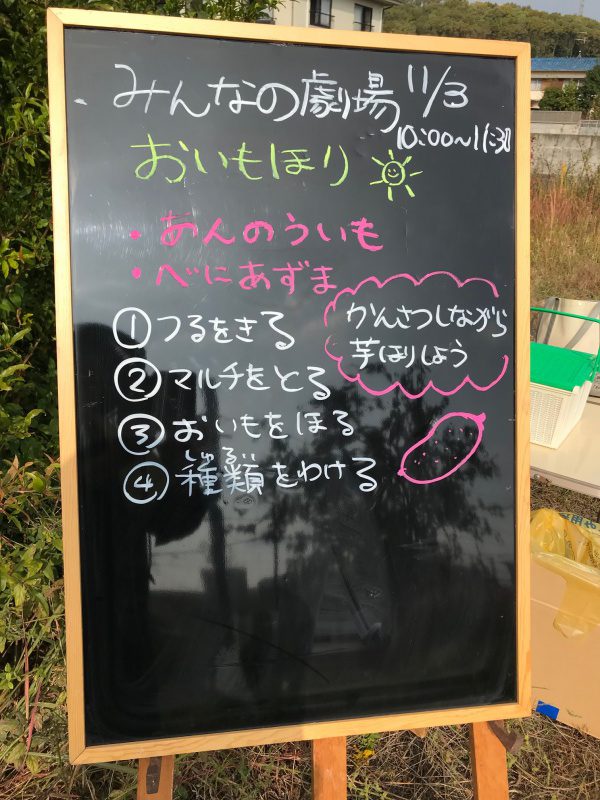 みんなの劇場 11/3
10:00~11:30
おいもほり
・あんのういも
・べにあずま
かんさつしながら
芋ほりしよう
①つるをきる
②マルチをとる
③おいもをほる
しゅるい
④種類をわける